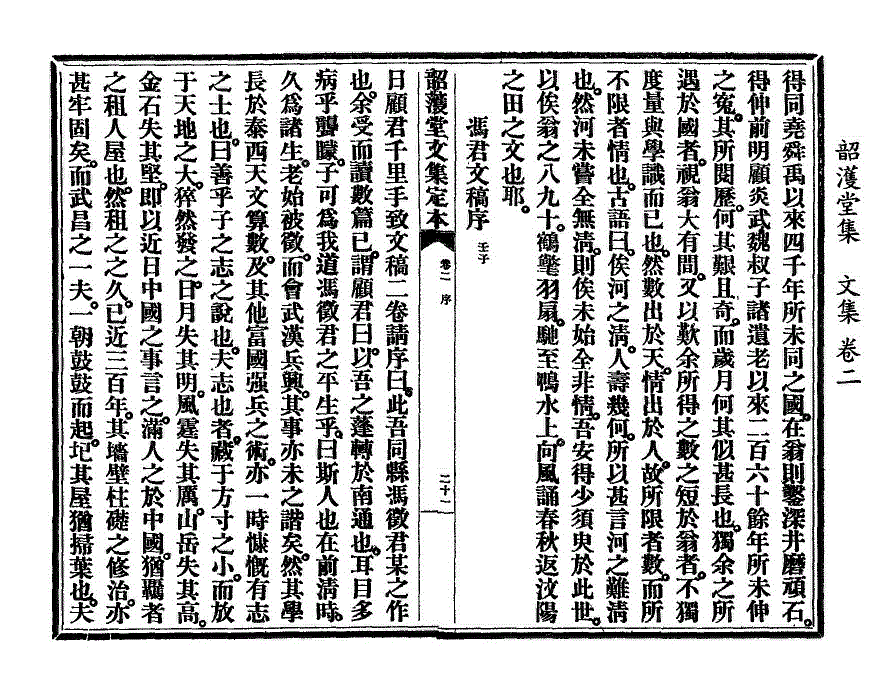 韶濩堂集　文集卷二
得同堯舜禹以來四千年所未同之國。在翁則鑿深井磨頑石。
得伸前明顧炎武魏叔子諸遺老以來二百六十餘年所未伸
之冤。其所閱歷。何其艱且奇。而歲月何其似甚長也。獨余之所
遇於國者。視翁大有間。又以歎余所得之數之短於翁者。不獨
度量與學識而已也。然數出於天。情出於人。故所限者數。而所
不限者情也。古語曰。俟河之淸。人壽幾何。所以甚言河之難淸
也。然河未嘗全無淸。則俟未始全非情。吾安得少須臾於此世。
以俟翁之八九十。鶴氅羽扇。馳至鴨水上。向風誦春秋返汶陽
之田之文也耶。
馮君文稿序 壬子
韶濩堂文集定本 卷二 序 二十一
日顧君千里手致文稿二卷請序曰。此吾同縣馮徵君某之作
也。余受而讀數篇已。謂顧君曰。以吾之蓬轉於南通也。耳目多
病乎聾矇。子可爲我道馮徵君之平生乎。曰斯人也在前淸時。
久爲諸生。老始被徵。而會武漢兵興。其事亦未之諧矣。然其學
長於泰西天文算數。及其他富國强兵之術。亦一時慷慨有志
之士也。曰善乎子之志之說也。夫志也者。藏于方寸之小。而放
于天地之大。猝然發之。日月失其明。風霆失其厲。山岳失其高。
金石失其堅。卽以近日中國之事言之。滿人之於中國。猶羈者
之租人屋也。然租之之久。已近三百年。其墻壁柱礎之修治。亦
甚牢固矣。而武昌之一夫。一朝鼓鼓而起。圮其屋猶掃葉也。夫